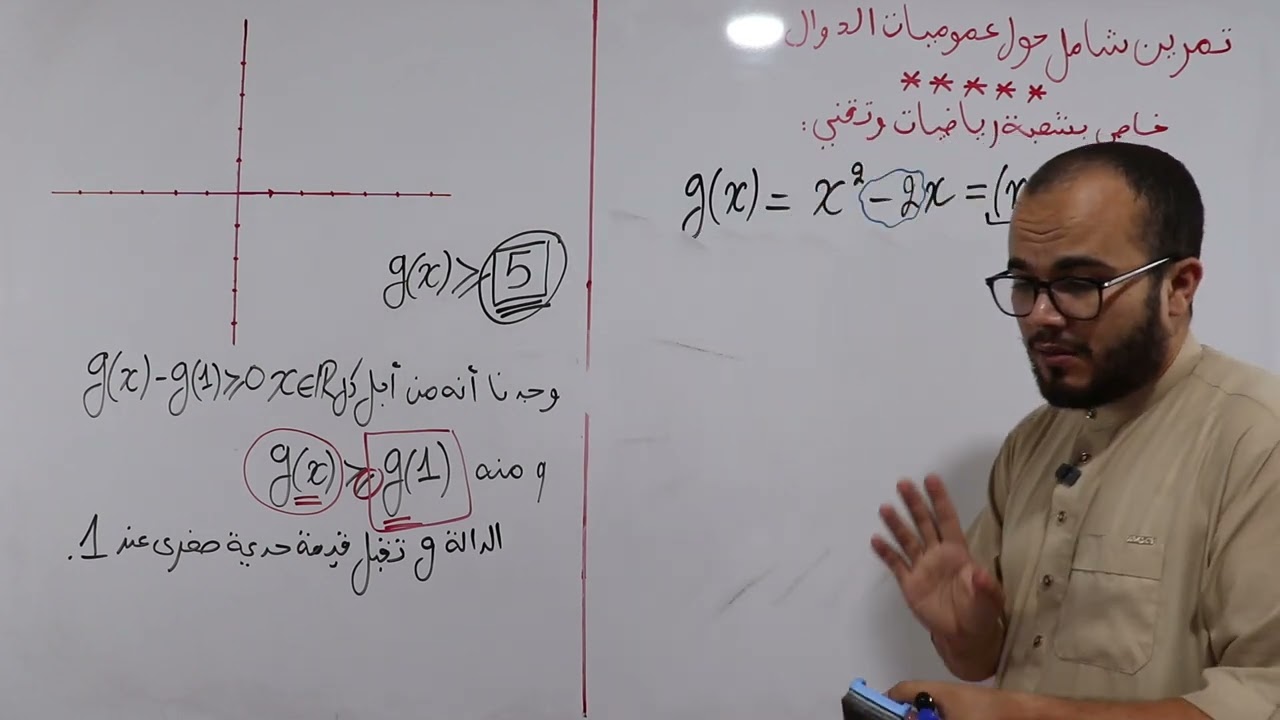 تمرين شامل حول عموميات الدوال
*****
خاص بشعبة رياضيات وتقني:
g(x) = x² - 2x = (x
g(x) ≥ 5
وجدنا أنه من أجل كل x∈ℝ g(x)-g(1)≥0
ومنه g(x) ≥ g(1)
الدالة g تقبل قيمة حدية صغرى عند 1.